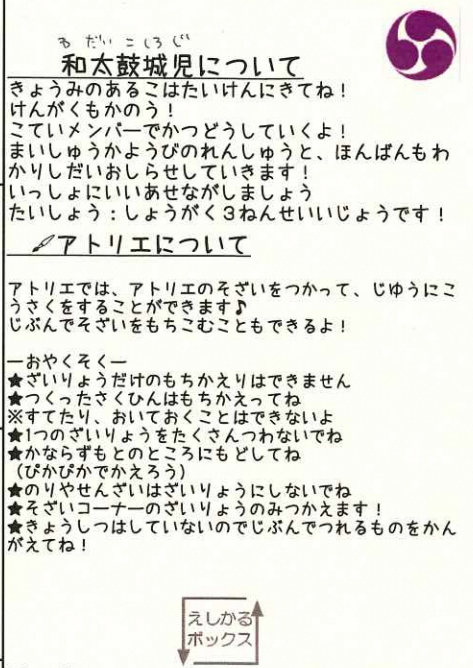 わだいこしろじ
和太鼓城児について
きょうみのあるこはたいけんにきてね！
けんがくもかのう！
こていメンバーでかつどうしていくよ！
まいしゅうかようびのれんしゅうと、ほんばんもわ
かりしだいおしらせしていきます！
いっしょにいいあせながしましょう
たいしょう：しょうがく３ねんせいいじょうです！
アトリエについて
アトリエでは、アトリエのそざいをつかって、じゆうにこ
うさくをすることができます♪
じぶんでそざいをもちこむこともできるよ！
ーおやくそくー
★ざいりょうだけのもちかえりはできません
★つくったさくひんはもちかえってね
※すてたり、おいておくことはできないよ
★1つのざいりょうをたくさんつわないでね
★かならずもとのところにもどしてね
（ぴかぴかでかえろう）
★のりやせんざいはざいりょうにしないでね
★そざいコーナーのざいりょうのみつかえます！
★きょうしつはしていないのでじぶんでつれるものをかん
がえてね！
えしかる
ボックス